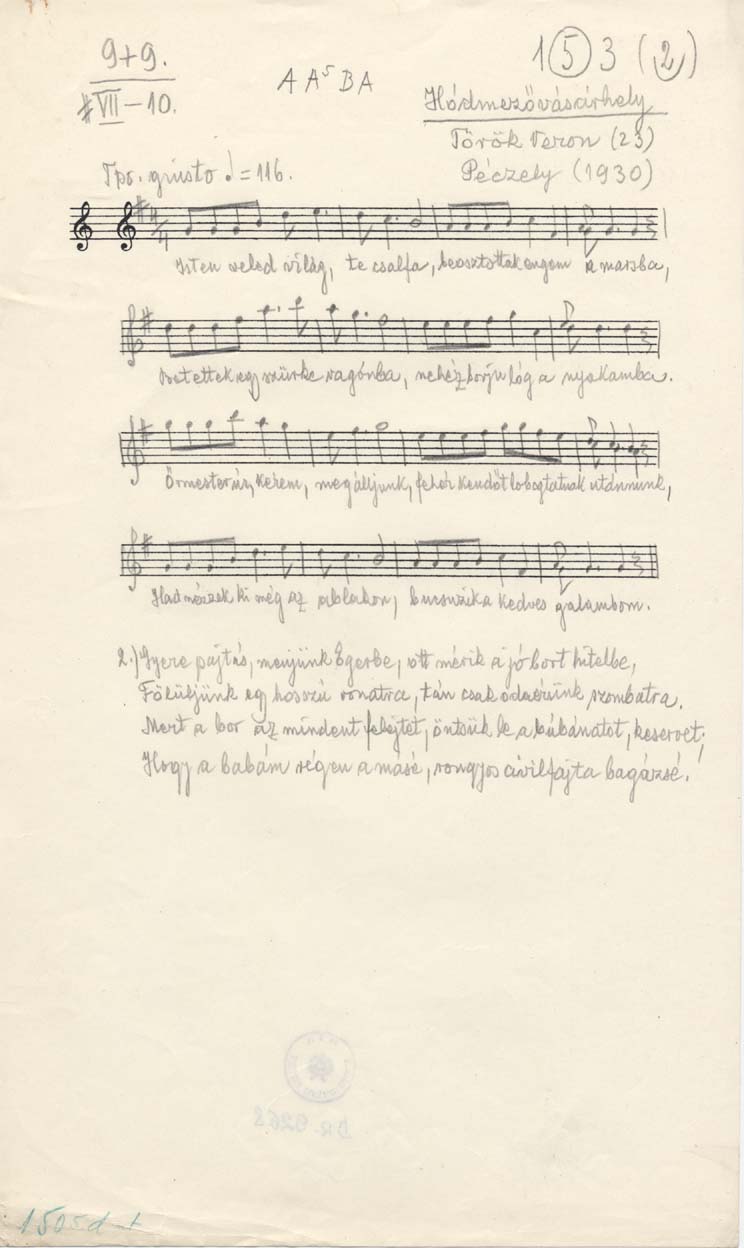 9+9.
#VII–10.
A A⁵ B A
1 5 3 (2)
Hódmezővásárhely
Török Veron (23)
Péczely (1930)
Tpo. giusto ♩=116.
4/4
Isten veled világ, te csalfa, beosztottak engem a marsba,
Betettek egy szürke vagónba, nehéz borju lóg a nyakamba.
Őrmester úr, kérem, megálljunk, fehér kendőt lobogtatnak utánnunk,
Had nézzek ki még az ablakon, bucsuzik a kedves galambom.
2.) Gyere pajtás, menjünk Egerbe, ott mérik a jó bort hitelbe,
Fölüljünk egy hosszú vonatra, tán csak odaérünk szombatra.
Mert a bor az mindent felejtet, öntsük le a búbánatot, keservet,
Hogy a babám régen a másé, rongyos civilfajta bagázsé!